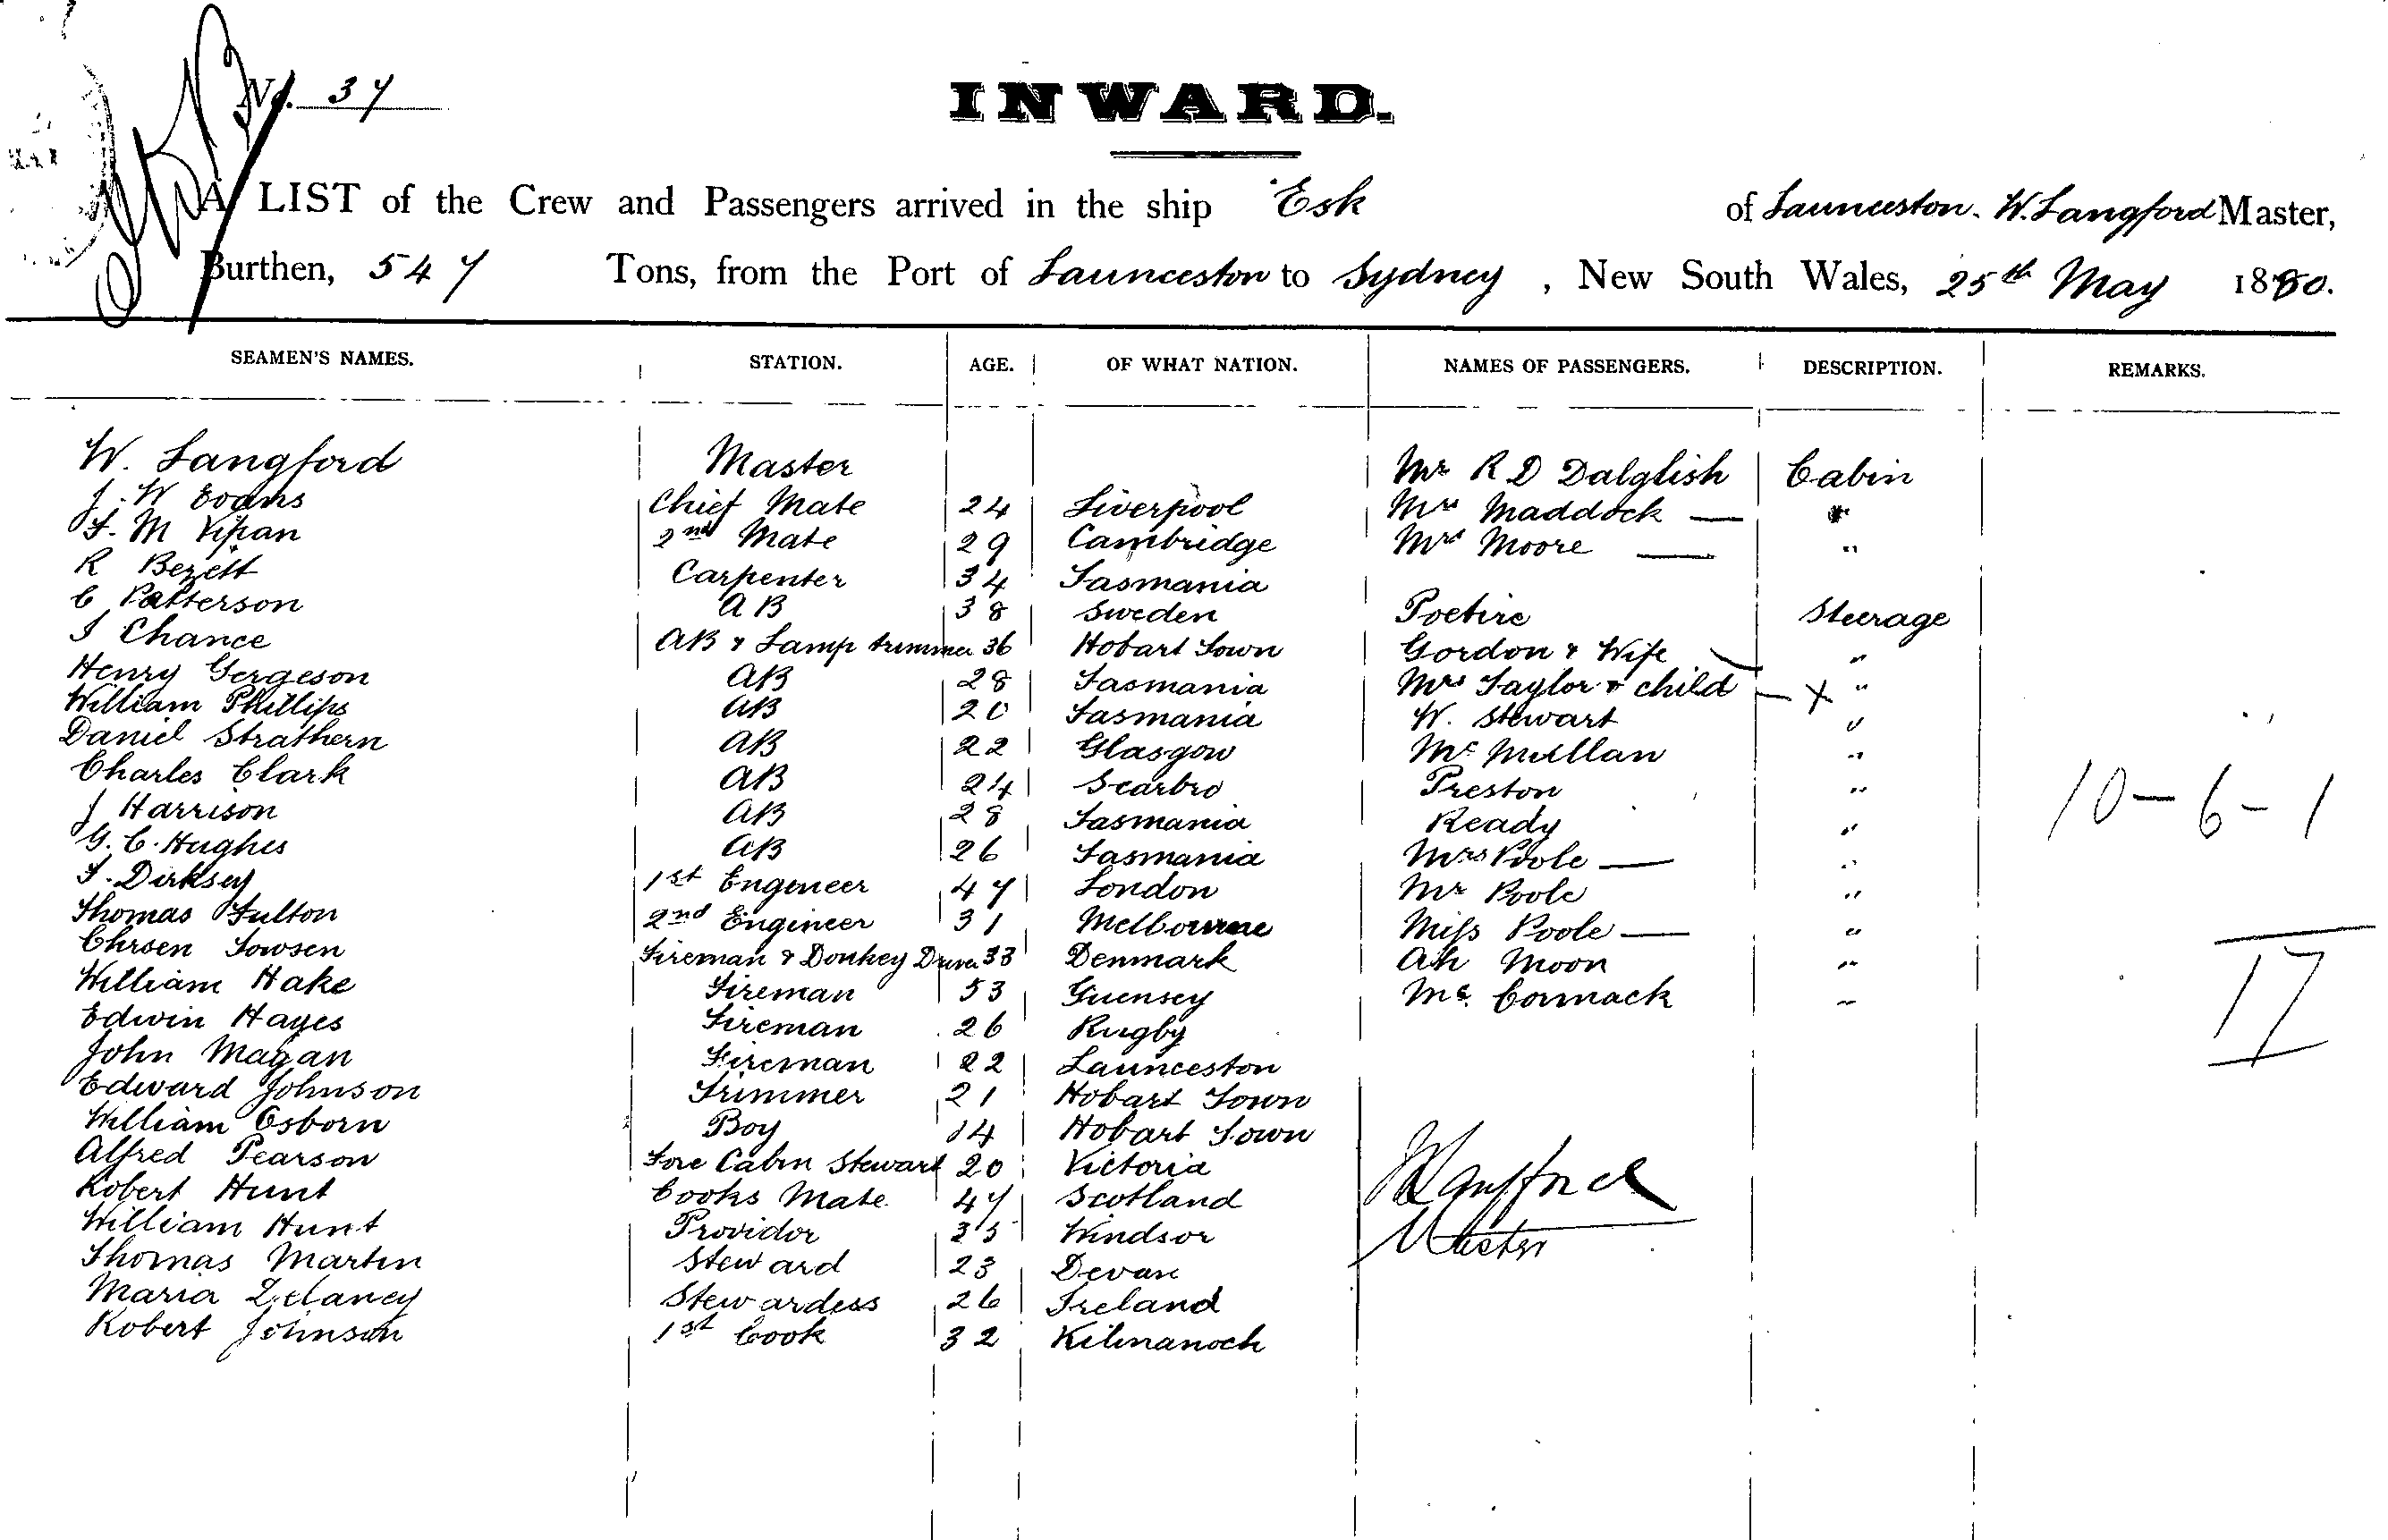 No. 37
INWARD.
A LIST of the Crew and Passengers arrived in the ship Esk of Launceston. W. Langford Master,
Burthen, 547 Tons, from the Port of Launceston to Sydney, New South Wales, 25th May 1880.
SEAMEN'S NAMES. STATION. AGE. OF WHAT NATION. NAMES OF PASSENGERS. DESCRIPTION. REMARKS.
W. Langford Master Mr R D Dalglish Cabin
J. W Evans Chief Mate 24 Liverpool Mrs Maddock — "
F. M Vipan 2nd Mate 29 Cambridge Mrs Moore — "
R Bezett Carpenter 34 Tasmania
C Patterson AB 38 Sweden Poetire Steerage
I Chance AB & Lamp trimmer 36 Hobart Town Gordon & Wife "
Henry Gergeson AB 28 Tasmania Mrs Taylor & child — X "
William Phillips AB 20 Tasmania W. Stewart "
Daniel Strathern AB 22 Glasgow Mc Mullan "
Charles Clark AB 24 Scarbro Preston "
J Harrison AB 28 Tasmania Ready "
G. C. Hughes AB 26 Tasmania Mrs Poole — "
F. Dirksey 1st Engeneer 47 London Mr Poole "
Thomas Fulton 2nd Engineer 31 Melbourne Miss Poole — "
Chrsen Towsen Fireman & Donkey Driver 33 Denmark Ah Moon "
William Hake Fireman 53 Guensey Mc. Cormack "
Edwin Hayes Fireman 26 Rugby
John Magan Fireman 22 Launceston
Edward Johnson Trimmer 21 Hobart Town
William Osborn Boy 14 Hobart Town
Alfred Pearson Fore Cabin Stewart 20 Victoria
Robert Hunt Cooks Mate 47 Scotland
William Hunt Providor 35 Windsor
Thomas Martin Steward 23 Devan
Maria Delaney Stewardess 26 Ireland
Robert Johnson 1st Cook 32 Kilmanoch
10-6-1
17
W Langford
Master